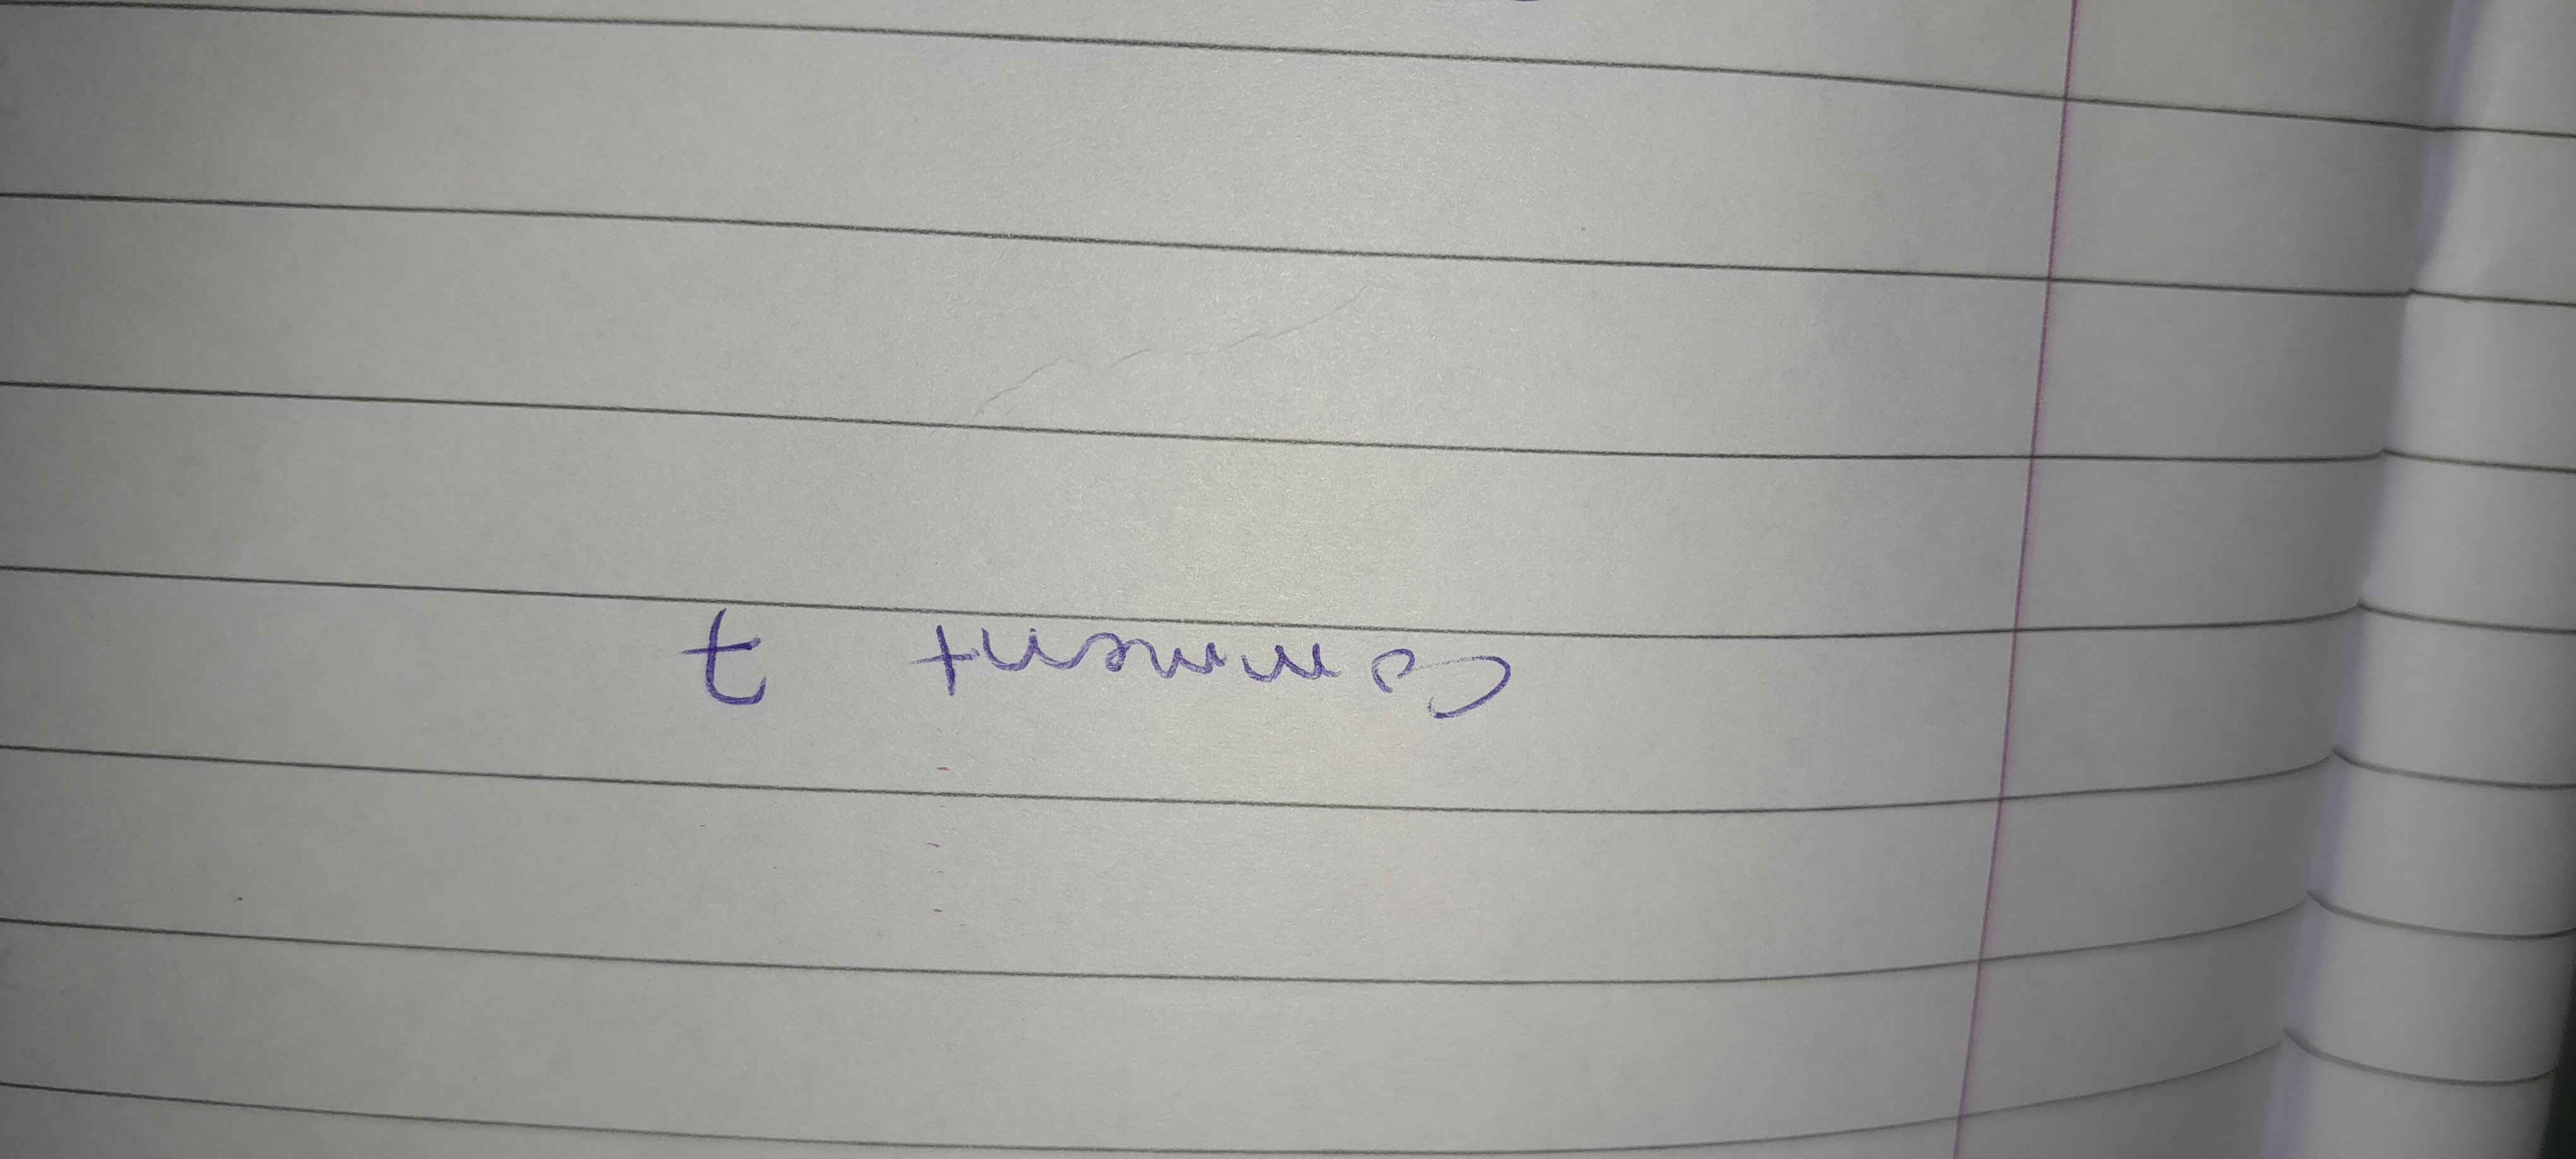 Comment 7